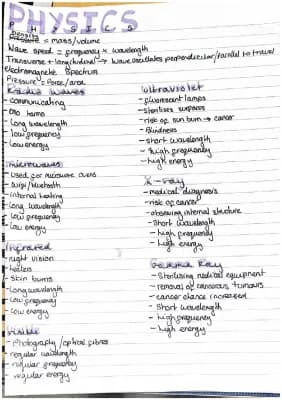 PHYSICS
PHYSICS
Density = mass/volume
Wave speed = frequency x wavelength
Transverse + longitudinal → wave oscillates perpendicular/parallel to travel
electromagnetic spectrum
Pressure = force/area
Radio waves
- communicating
- no harm
- long wavelength
- low frequency
- low energy
microwaves
- used for microwave ovens
- wifi/bluetooth
- internal heating
- long wavelength
- low frequency
- low energy
Infrared
- night vision
- heaters
- skin burns
- Long wavelength
- low frequency
- low energy
visible
- photography /optical fibres
- regular wavelength
- regular frequency
- regular energy
Ultraviolet
- fluorescent lamps
- sterilises surfaces
- risk of sun burn → cancer
- Blindness
- short wavelength
- high frequency
- high energy
X-ray
- medical diagnosis
- risk of cancer
- observing internal structure
- Short wavelength
- high frequency
- high energy
Gamma Ray
- Sterilising medical equipment
- removal of cancerous tumours
- cancer chance increased
- Short wavelength
- high frequency
- high energy